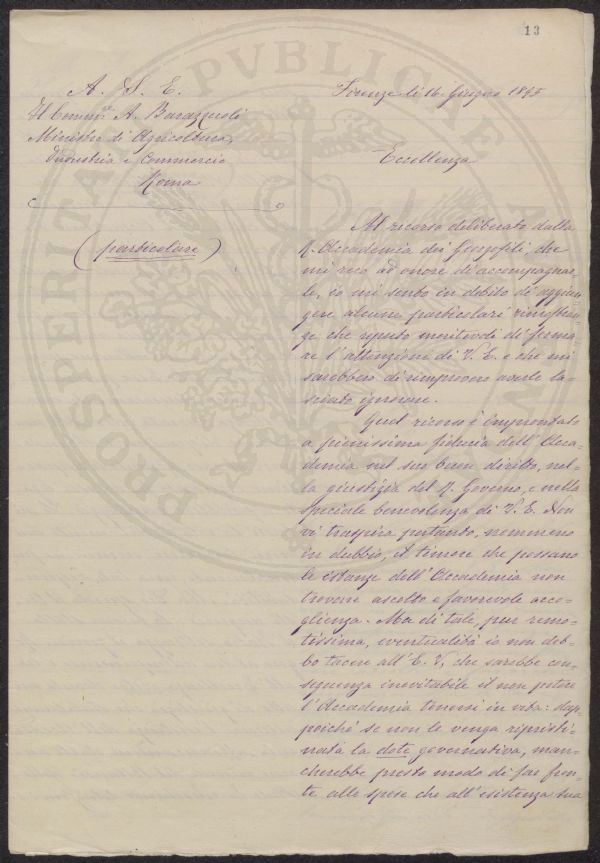 13
PROSPERITATI PVBLICAE
A. S. E.
Il Comm.re A. Barazzuoli
Ministro di Agricoltura,
Industria e Commercio
Roma
(particolare)
Firenze li 16 Giugno 1895
Eccellenza
Al ricorso deliberato dalla
R. Accademia dei Georgofili, che
mi reco ad onore di accompagnar-
le, io mi sento in debito di aggiun-
gere alcune particolari
che reputo meritevoli di ferma-
re l'attenzione di V. E. e che mi
sarebbero di rimprovero averle la-
sciate ignorare.
Quel ricorso è improntato
a pienissima fiducia dell'Acca-
demia nel suo buon diritto, nel-
la giustizia del R. Governo, e nella
speciale benevolenza di V. E. Non
vi traspira pertanto, nemmeno
in dubbio, il timore che possano
le istanze dell'Accademia non
trovare ascolto e favorevole acco-
glienza. Ma di tale, pur remo-
tissima, eventualità io non deb-
bo tacere all'E. V. che sarebbe con-
seguenza inevitabile il non potere
l'Accademia tenersi in vita: dap-
poiché se non le venga ripristi-
nata la dote governativa, man-
cherebbe presto modo di far fron-
te alle spese che all'esistenza sua